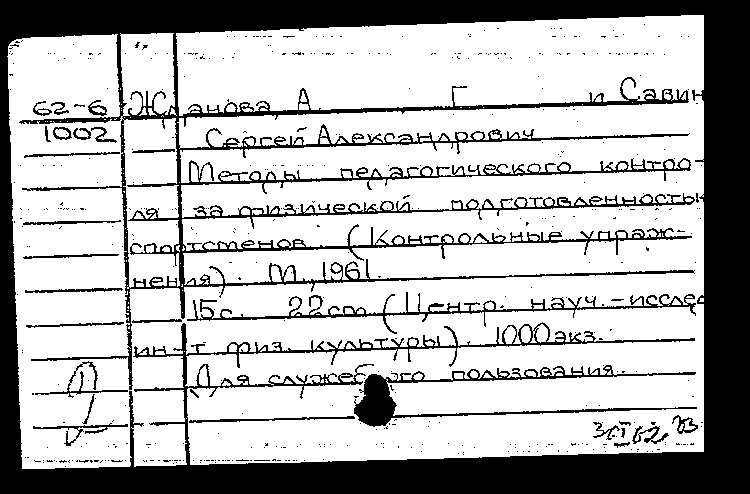 62-6 Жданова, А Г и Савин
1002 Сергей Александрович
Методы педагогического контро-
ля за физической подготовленностью
спортсменов. (Контрольные упраж-
нения). М., 1961.
15с. 22см (Центр. науч.-исслед
ин-т физ. культуры). 1000экз.
Для служебного пользования.